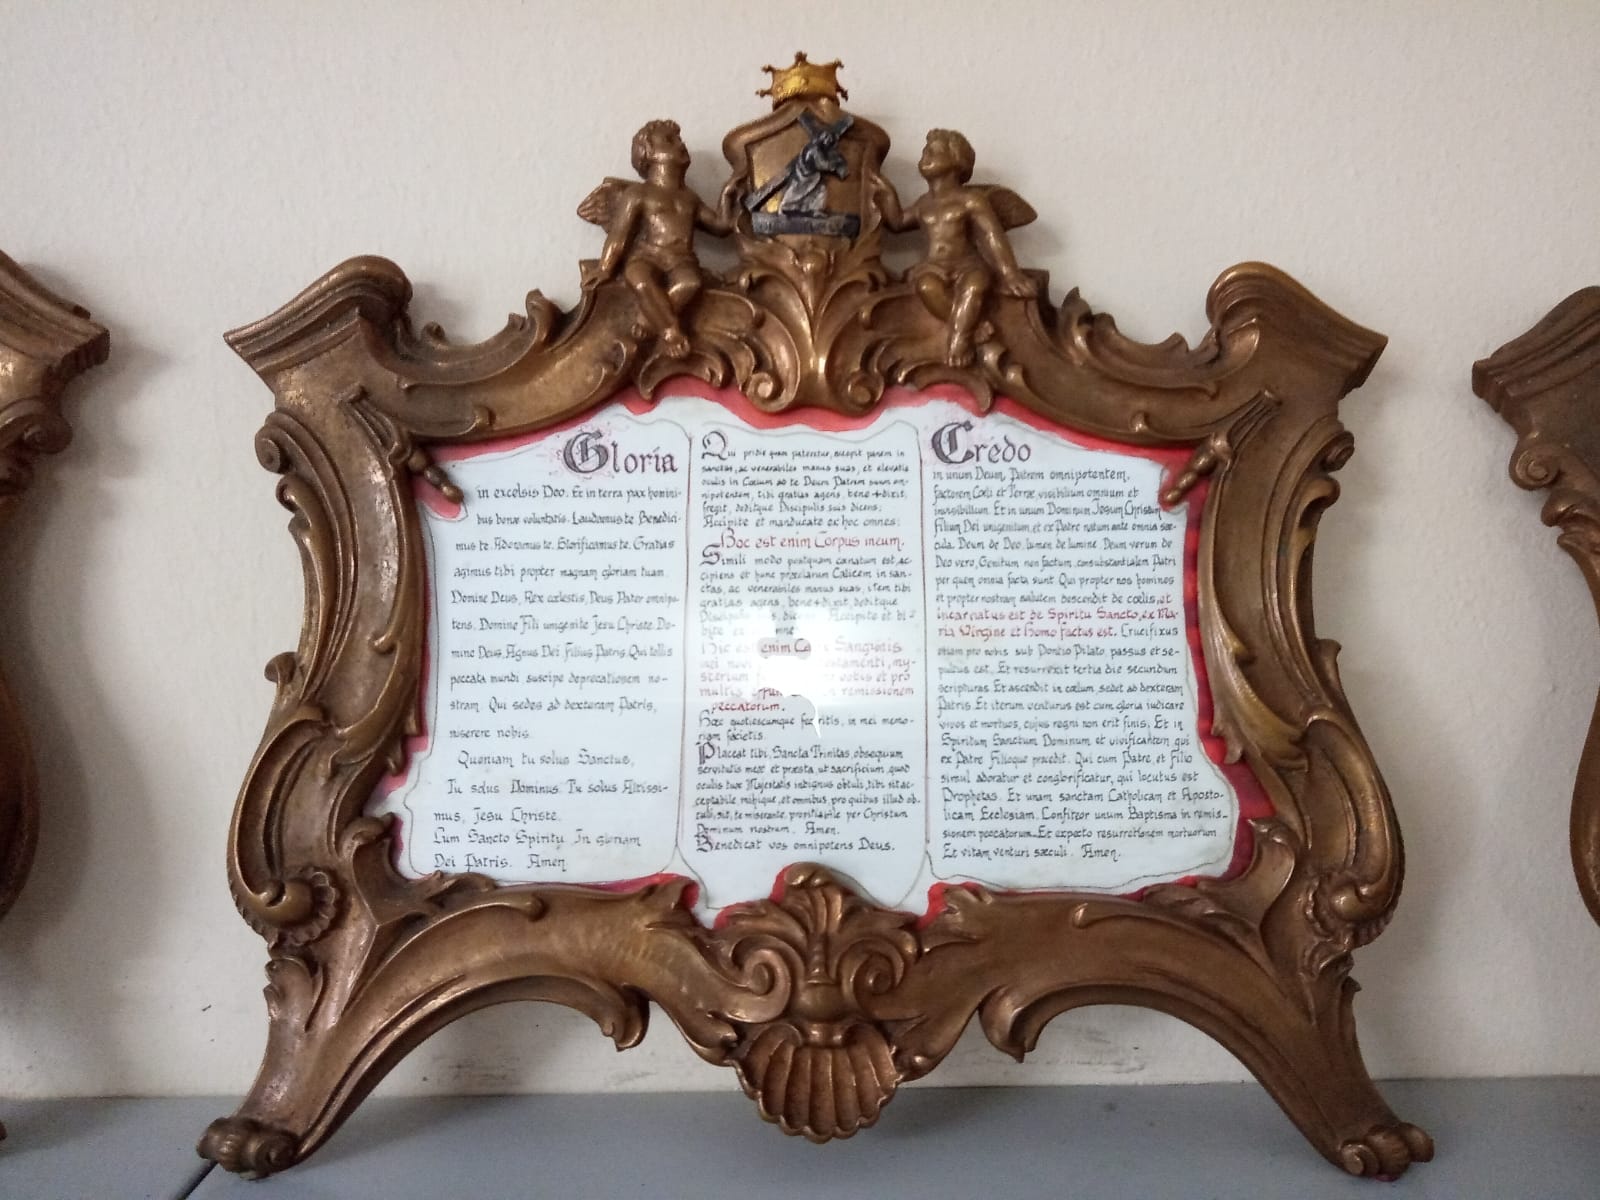 Gloria
in excelsis Deo. Et in terra pax homini-
bus bonæ voluntatis. Laudamus te. Benedici-
mus te. Adoramus te. Glorificamus te. Gratias
agimus tibi propter magnam gloriam tuam.
Domine Deus, Rex cælestis, Deus Pater omnipo-
tens. Domine Fili unigenite Jesu Christe. Do-
mine Deus, Agnus Dei, Filius Patris. Qui tollis
peccata mundi suscipe deprecationem no-
stram. Qui sedes ad dexteram Patris,
miserere nobis.
Quoniam tu solus Sanctus,
Tu solus Dominus. Tu solus Altissi-
mus, Jesu Christe.
Cum Sancto Spiritu In gloriam
Dei Patris. Amen
Qui pridie quam pateretur, accepit panem in
sanctas, ac venerabiles manus suas, et elevatis
oculis in Cœlum ad te Deum Patrem suum om-
nipotentem, tibi gratias agens, bene+dixit,
fregit, deditque Discipulis suis dicens:
Accipite et manducate ex hoc omnes:
Hoc est enim Corpus meum.
Simili modo postquam cœnatum est, ac-
cipiens et hunc præclarum Calicem in san-
ctas, ac venerabiles manus suas, item tibi
gratias agens, bene+dixit, deditque
Accipite et bi-
bite
Hic est enim Sanguinis
mei my-
sterium vobis et pro
multis in remissionem
peccatorum.
Hæc quotiescumque feceritis, in mei memo-
riam facietis.
Placeat tibi, Sancta Trinitas, obsequium
servitutis meæ et præsta, ut sacrificium, quod
oculis tuæ Majestatis indignus obtuli, tibi sit ac-
ceptabile, mihique, et omnibus, pro quibus illud ob-
tuli, sit, te miserante, propitiabile per Christum
Dominum nostrum. Amen.
Benedicat vos omnipotens Deus.
Credo
in unum Deum, Patrem omnipotentem,
factorem Cœli et Terræ, visibilium omnium et
invisibilium. Et in unum Dominum Jesum Christum
Filium Dei unigenitum, et ex Patre natum ante omnia sæ-
cula. Deum de Deo, lumen de lumine, Deum verum de
Deo vero, Genitum non factum, consubstantialem Patri
per quem omnia facta sunt Qui propter nos homines
et propter nostram salutem descendit de cœlis, et
incarnatus est de Spiritu Sancto, ex Ma-
ria Virgine et homo factus est. Crucifixus
etiam pro nobis sub Pontio Pilato, passus et se-
pultus est. Et resurrexit tertia die secundum
scripturas. Et ascendit in cœlum, sedet ad dexteram
Patris. Et iterum venturus est cum gloria iudicare
vivos et mortuos, cujus regni non erit finis. Et in
Spiritum Sanctum Dominum et vivificantem qui
ex Patre Filioque procedit. Qui cum Patre, et Filio
simul adoratur et conglorificatur, qui locutus est
Prophetas. Et unam sanctam Catholicam et Aposto-
licam Ecclesiam. Confiteor unum Baptisma in remis-
sionem peccatorum. Et expecto resurrectionem mortuorum
Et vitam venturi sæculi. Amen.